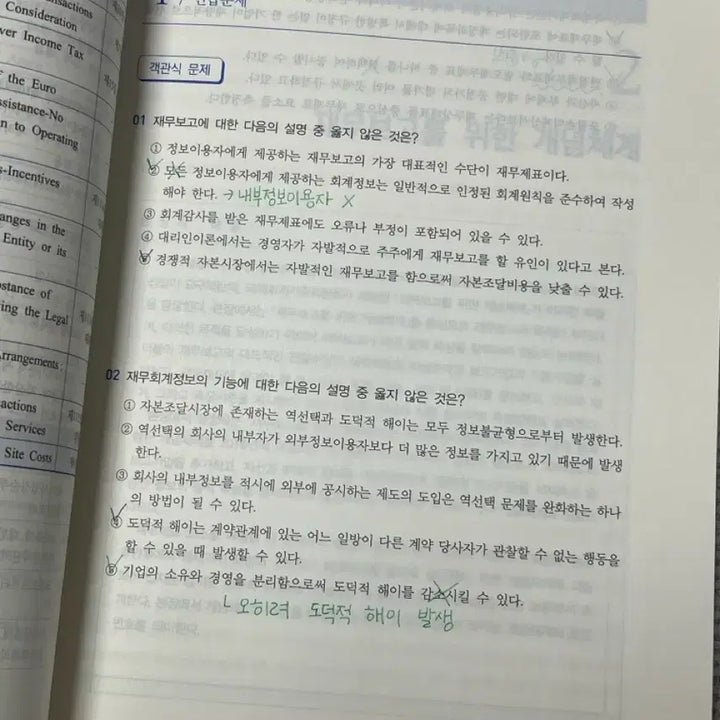 nsactions
Consideration
ver Income Tax
the Euro
ssistance-No
n to Operating
s-Incentives
anges in the
Entity or its
ostance of
ing the Legal
rrangements
actions
Services
Site Costs
객관식 문제
01 재무보고에 대한 다음의 설명 중 옳지 않은 것은?
① 정보이용자에게 제공하는 재무보고의 가장 대표적인 수단이 재무제표이다.
② 모든 정보이용자에게 제공하는 회계정보는 일반적으로 인정된 회계원칙을 준수하여 작성
해야 한다. → 내부정보이용자 X
③ 회계감사를 받은 재무제표에도 오류나 부정이 포함되어 있을 수 있다.
④ 대리인이론에서는 경영자가 자발적으로 주주에게 재무보고를 할 유인이 있다고 본다.
⑤ 경쟁적 자본시장에서는 자발적인 재무보고를 함으로써 자본조달비용을 낮출 수 있다.
02 재무회계정보의 기능에 대한 다음의 설명 중 옳지 않은 것은?
① 자본조달시장에 존재하는 역선택과 도덕적 해이는 모두 정보불균형으로부터 발생한다.
② 역선택의 회사의 내부자가 외부정보이용자보다 더 많은 정보를 가지고 있기 때문에 발생
한다.
③ 회사의 내부정보를 적시에 외부에 공시하는 제도의 도입은 역선택 문제를 완화하는 하나
의 방법이 될 수 있다.
④ 도덕적 해이는 계약관계에 있는 어느 일방이 다른 계약 당사자가 관찰할 수 없는 행동을
할 수 있을 때 발생할 수 있다.
⑤ 기업의 소유와 경영을 분리함으로써 도덕적 해이를 감소시킬 수 있다.
ㄴ 오히려 도덕적 해이 발생